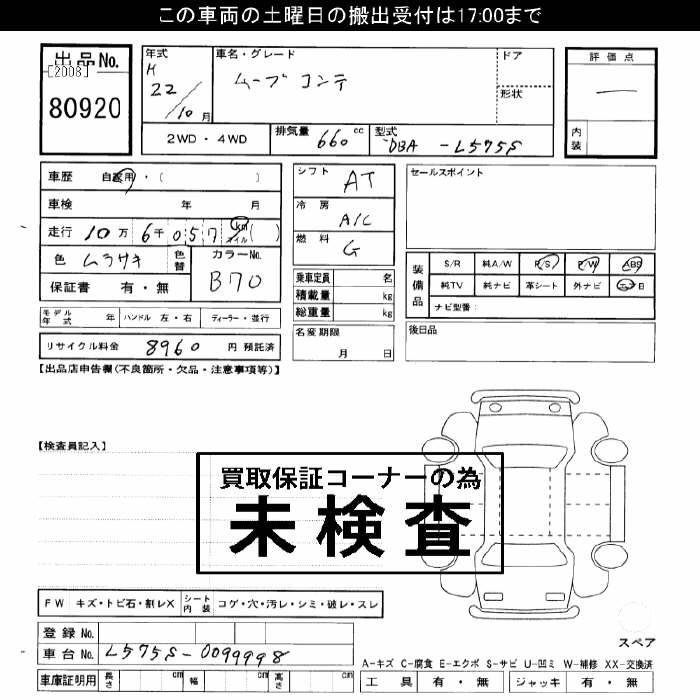 この車両の土曜日の搬出受付は17:00まで
出品No.
[2008]
80920
年式
H
22
/10 月
車名・グレード
ムーブ コンテ
ドア
形状
評価点
—
内装
2WD・4WD
排気量 660 cc
型式 DBA - L575S
車歴 自家用・( )
車検 年 月
走行 10万 6千 057 km マイル ( )
色 ムラサキ 色替
カラーNo.
B70
保証書 有・無
シフト AT
冷房 A/C
燃料 G
乗車定員 名
積載量 kg
総重量 kg
名変期限
月 日
セールスポイント
装備品
S/R 純A/W P/S P/W ABS
純TV 純ナビ 革シート 外ナビ
ナビ型番:
後日品
モデル年式 年 ハンドル 左・右 ディーラー・並行
リサイクル料金 8960 円 預託済
【出品店申告欄(不良箇所・欠品・注意事項等)】
【検査員記入】
買取保証コーナーの為
未検査
FW キズ・トビ石・割レX シート内装 コゲ・穴・汚レ・シミ・破レ・スレ
登録 No.
車台 No. L575S-0099998
車庫証明用 長さ cm 幅 cm 高さ cm
スペア
A-キズ C-腐食 E-エクボ S-サビ U-凹ミ W-補修 XX-交換済
工具 有・無 ジャッキ 有・無